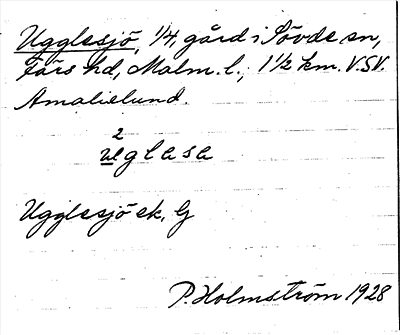 Ugglesjö, 1/4, gård i Sövde sn,
Färs hd, Malm. l., 1 1/2 km. V.SV.
Amalielund.
2
uglasa
Ugglesjö ek, G
P. Holmström 1928